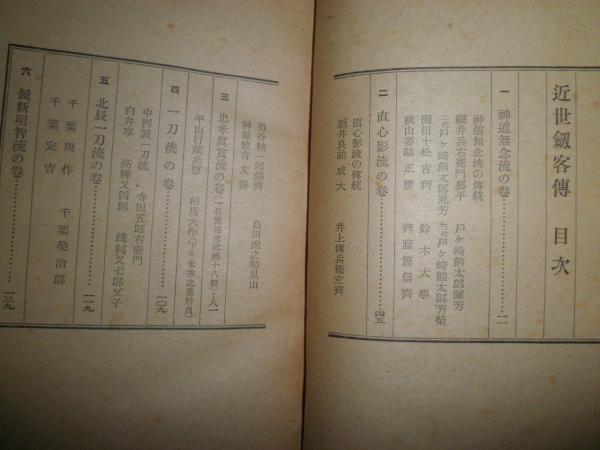 近世劔客傳 目次
一 神道無念流の卷
神道無念流の傳統
福井兵右衞門嘉平 戸ヶ崎熊太郎暉芳
二代戸ヶ崎熊太郎胤芳 三代戸ヶ崎熊太郎芳榮
岡田十松吉利 鈴木大學
秋山要助正勝 齊藤篤信齊
二 直心影流の卷 四五
直心影流の傳統
酒井良祐成大 井上傳兵衞玄齊
男谷精一郎靜齊 島田虎之助見山
榊原鍵吉友善
三 忠孝眞貫流の卷 八一
平山行藏兵原 相馬大作
四 一刀流の卷 一〇九
中西派一刀流 寺田五郎右衞門
白井亨 高柳又四郎 淺利又七郎父子
五 北辰一刀流の卷 一一九
千葉周作 千葉榮治郎
千葉定吉
六 鏡新明智流の卷 一三九